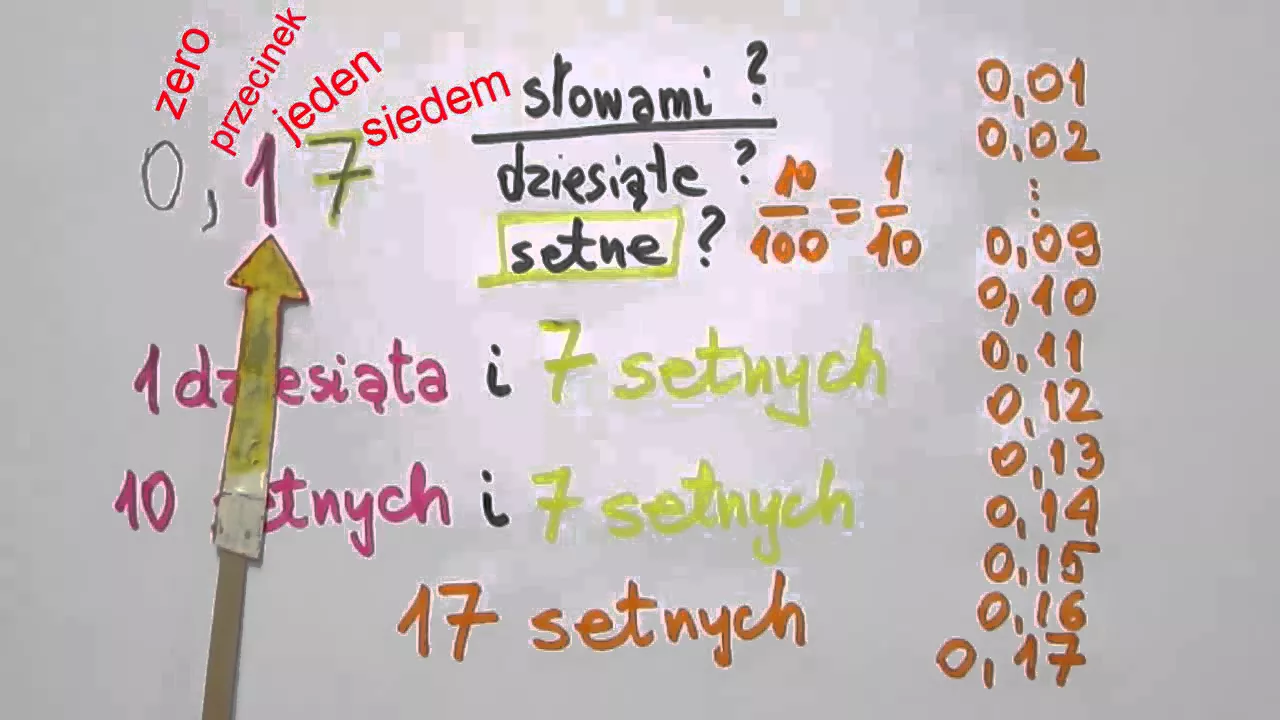 zero przecinek jeden siedem
0,17
słowami?
dziesiąte?
setne?
10/100 = 1/10
1 dziesiąta i 7 setnych
10 setnych i 7 setnych
17 setnych
0,01
0,02
⋮
0,09
0,10
0,11
0,12
0,13
0,14
0,15
0,16
0,17